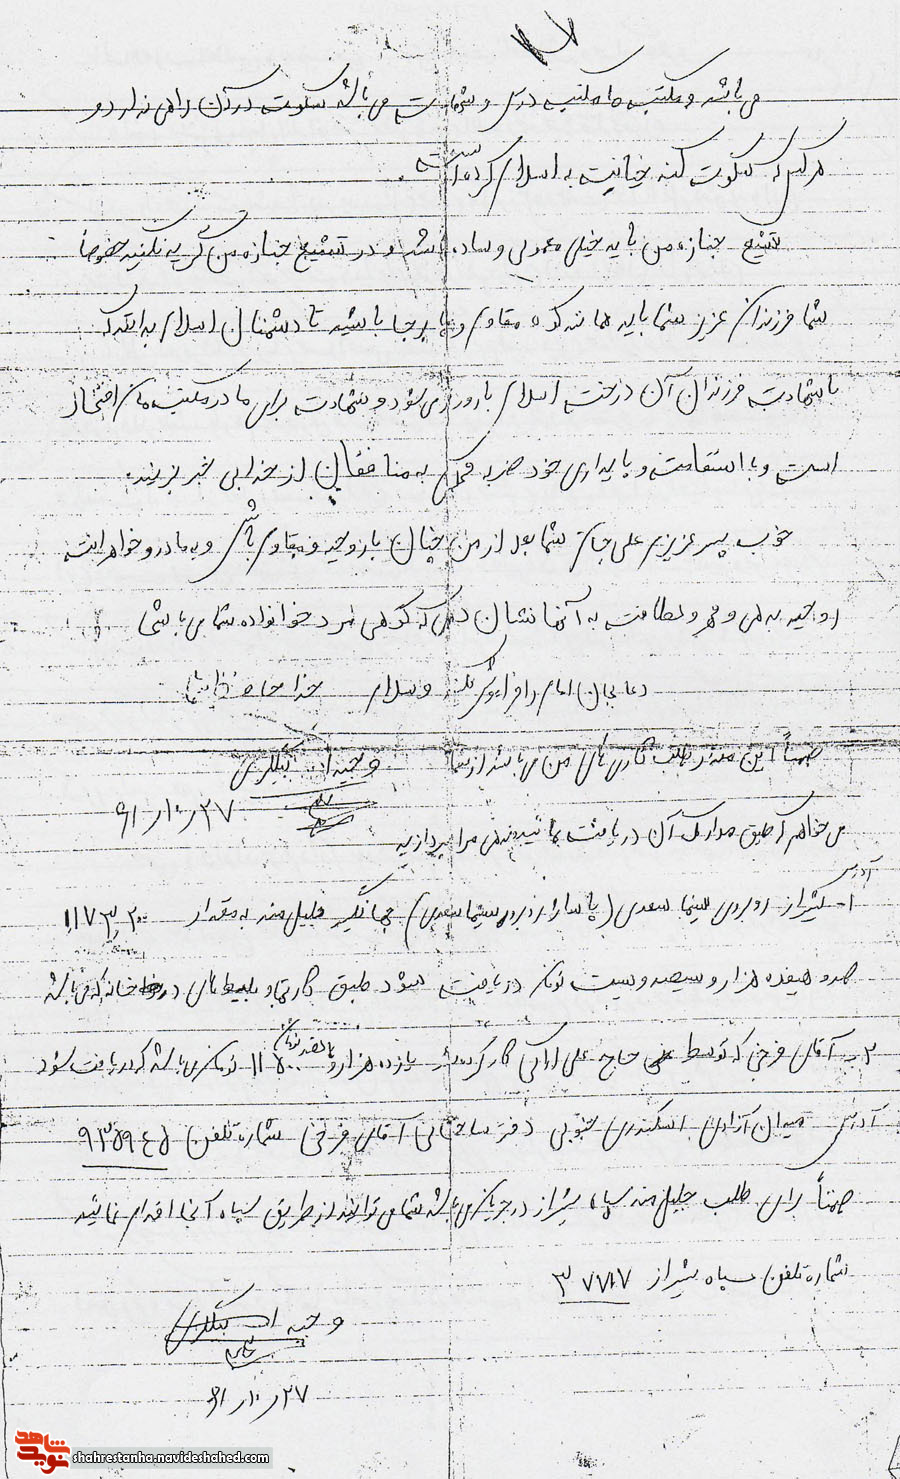 ۷
می باشد و مکتب ما مکتب درس و شهادت می باشد سکوت در آن راهی ندارد و
هر کس که سکوت کند خیانت به اسلام کرده است .
تشیع جنازه من باید خیلی معمولی و ساده باشد و در تشیع جنازه من گریه نکنید خصوصاً
شما فرزندان عزیز شما باید مانند کوه مقاوم و پا برجا باشید تا دشمنان اسلام بدانند که
با شهادت فرزندان آن درخت اسلام بارورتر می شود و شهادت برای ما در مکتب مان افتخار
است و با استقامت و پایداری خود ضربه محکمی به منافقان از خدا بی خبر بزنید .
خوب پسر عزیزم علی جان شما بعد از من چنان با روحیه و مقاوم باش و به مادر و خواهرانت
روحیه بدهی و مهر و لطافت به آنها نشان دهی که گوئی مرد خوانواده شما می باشی
دعا بجان امام را فراموش نکنید وسلام خدا حافظ شما
ضمناً این مقدار طلب کاری های من می باشد از شما وحید اله بیگلری
۶۱/۱۰/۲۷
می خواهم که طبق مدارک آن دریافت نمائید بدهی مرا بپردازید
آدرس
۱- شیراز روبروی سینما سعدی (پاساژ روبروی سینما سعدی) جهانگیر جلیل منه به مقدار ۱۱۷۳۲۰
صد و هیفده هزار و سیصد و بیست تومان دریافت شود طبق کارتها و بلیط های در خانه که می باشد
۲- آقای فرخی که توسط حاج علی اراکی کار کرده شد یازده هزار و پانصد تومان ۱۱۵۰۰ تومان می باشد که دریافت شود
آدرس میدان آزادی اسکندری جنوبی دفتر ساختمانی آقای فرخی شماره تلفن ۹۳۵۹۴۵
ضمناً برای طلب جلیل منه سپاه شیراز در جریان می باشد شما می توانید از طریق سپاه آنجا اقدام نمائید
شماره تلفن سپاه شیراز ۳۷۷۱۷
وحید اله بیگلری
۶۱/۱۰/۲۷
نوید شاهد
shahrestanha.navideshahed.com